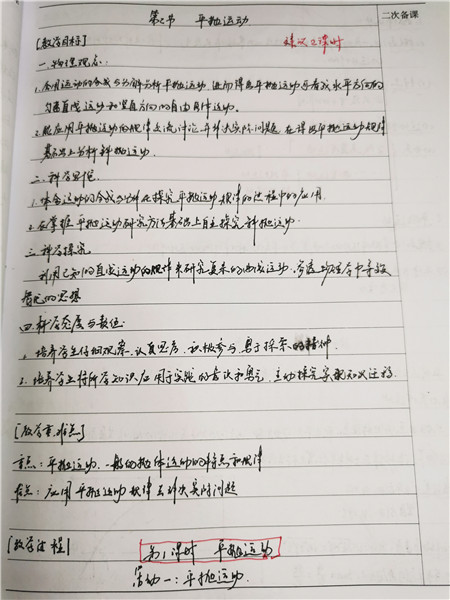 第2节 平抛运动
二次备课
[教学目标]
建议2课时
一.物理观念:
1.会用运动的合成与分解分析平抛运动,进而得出平抛运动可看成水平方向的
匀速直线运动和竖直方向的自由落体运动。
2.能应用平抛运动的规律交流讨论并解决实际问题,在得出平抛运动规律
基础上分析斜抛运动.
二.科学思维.
1.体会运动的合成与分解在探究平抛运动规律的过程中的应用.
2.在掌握平抛运动研究方法基础上自主探究斜抛运动.
三.科学探究
利用已知的直线运动的规律来研究复杂的曲线运动,渗透物理学中等效
替代的思想
四.科学态度与责任.
1.培养学生仔细观察、认真思考、积极参与、勇于探索的精神.
2.培养学生将所学知识应用于实践的意识和勇气,主动探究实现知识迁移.
[教学重难点]
重点:平抛运动、一般的抛体运动的特点和规律
难点:应用平抛运动规律去解决具体问题
[教学过程]
第1课时 平抛运动
活动一:平抛运动.